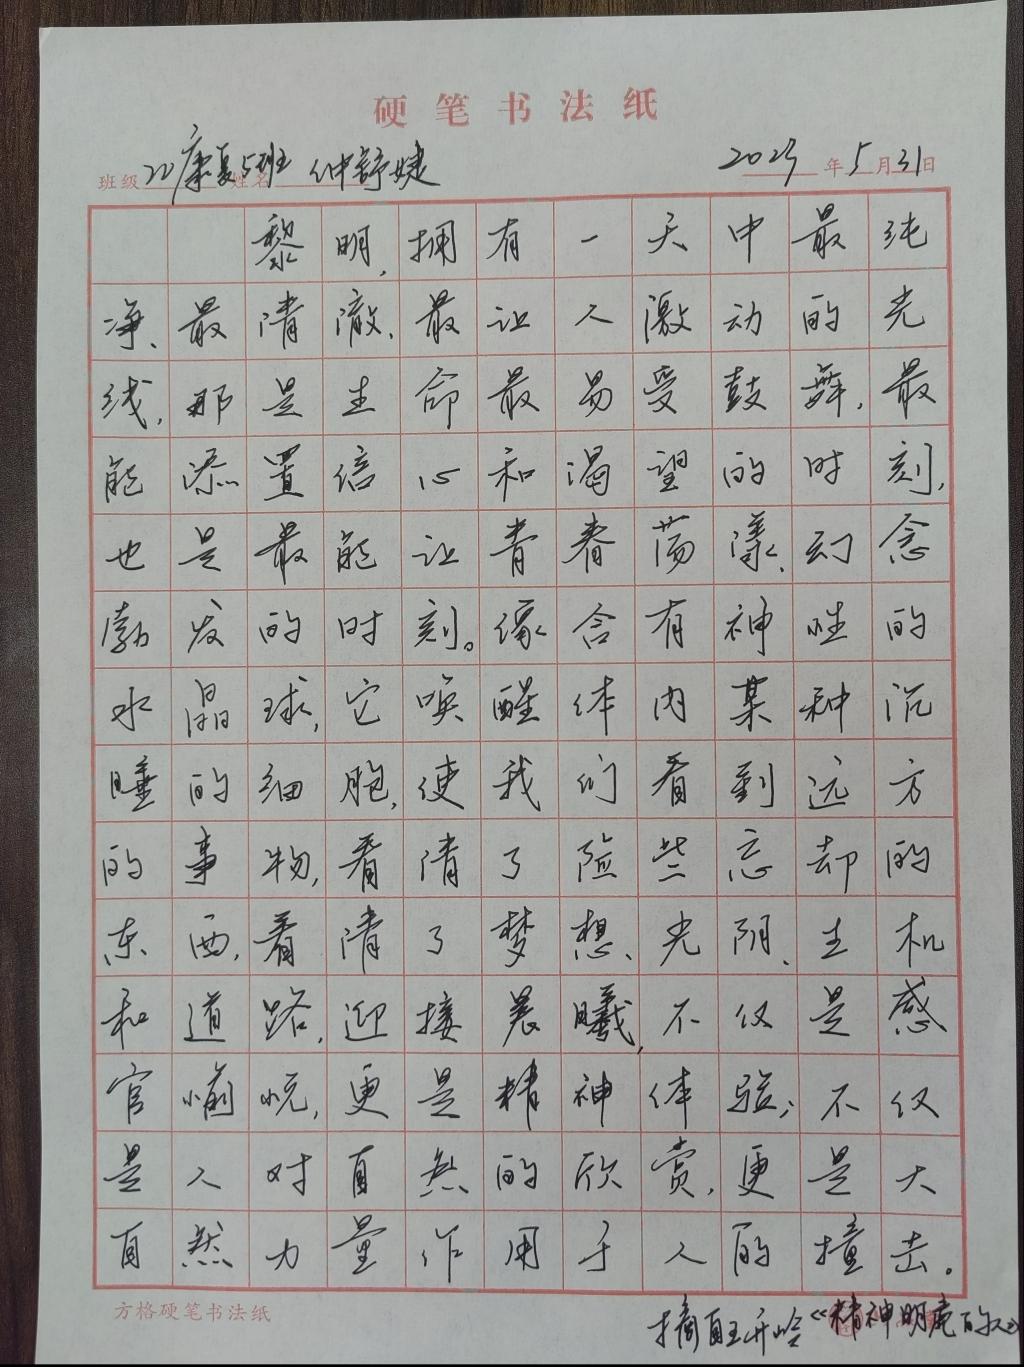 硬笔书法纸
班级 22康复5班 姓名 仲舒婕 2023年5月31日
黎明,拥有一天中最纯
净、最清澈,最让人激动的光
线,那是生命最易受鼓舞,最
能添置信心和渴望的时刻,
也是最能让青春荡漾、幻念
勃发的时刻。像含有神性的
水晶球,它唤醒体内某种沉
睡的细胞,使我们看到远方
的事物,看清了险些忘却的
东西,看清了梦想、光阴、生机
和道路,迎接晨曦,不仅是感
官愉悦,更是精神体验;不仅
是人对自然的欣赏,更是大
自然力量作用于人的撞击。
方格硬笔书法纸
摘自王开岭《精神明亮的人》